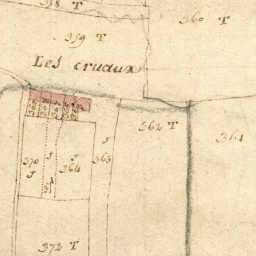 358 T
360 T
359 T
Les cruaux
362 T
361
J
363
370
J
J
364
372 T